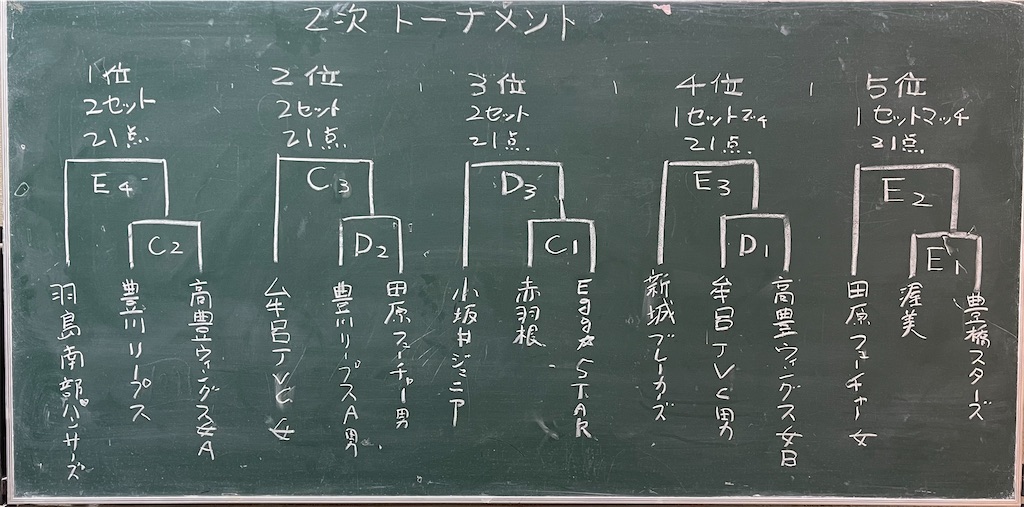 2次 トーナメント
1位
2セット
21点
E4
C2
羽島南部パンサーズ
豊川リープス
高豊ウィングス女A
2位
2セット
21点
C3
D2
牟呂JVC女
豊川リープスA男
田原フューチャー男
3位
2セット
21点
D3
C1
小坂井ジュニア
赤羽根
Egg☆STAR
4位
1セットマッチ
21点
E3
D1
新城ブレーカーズ
牟呂JVC男
高豊ウィングス女B
5位
1セットマッチ
21点
E2
E1
田原フューチャー女
渥美
豊橋スターズ